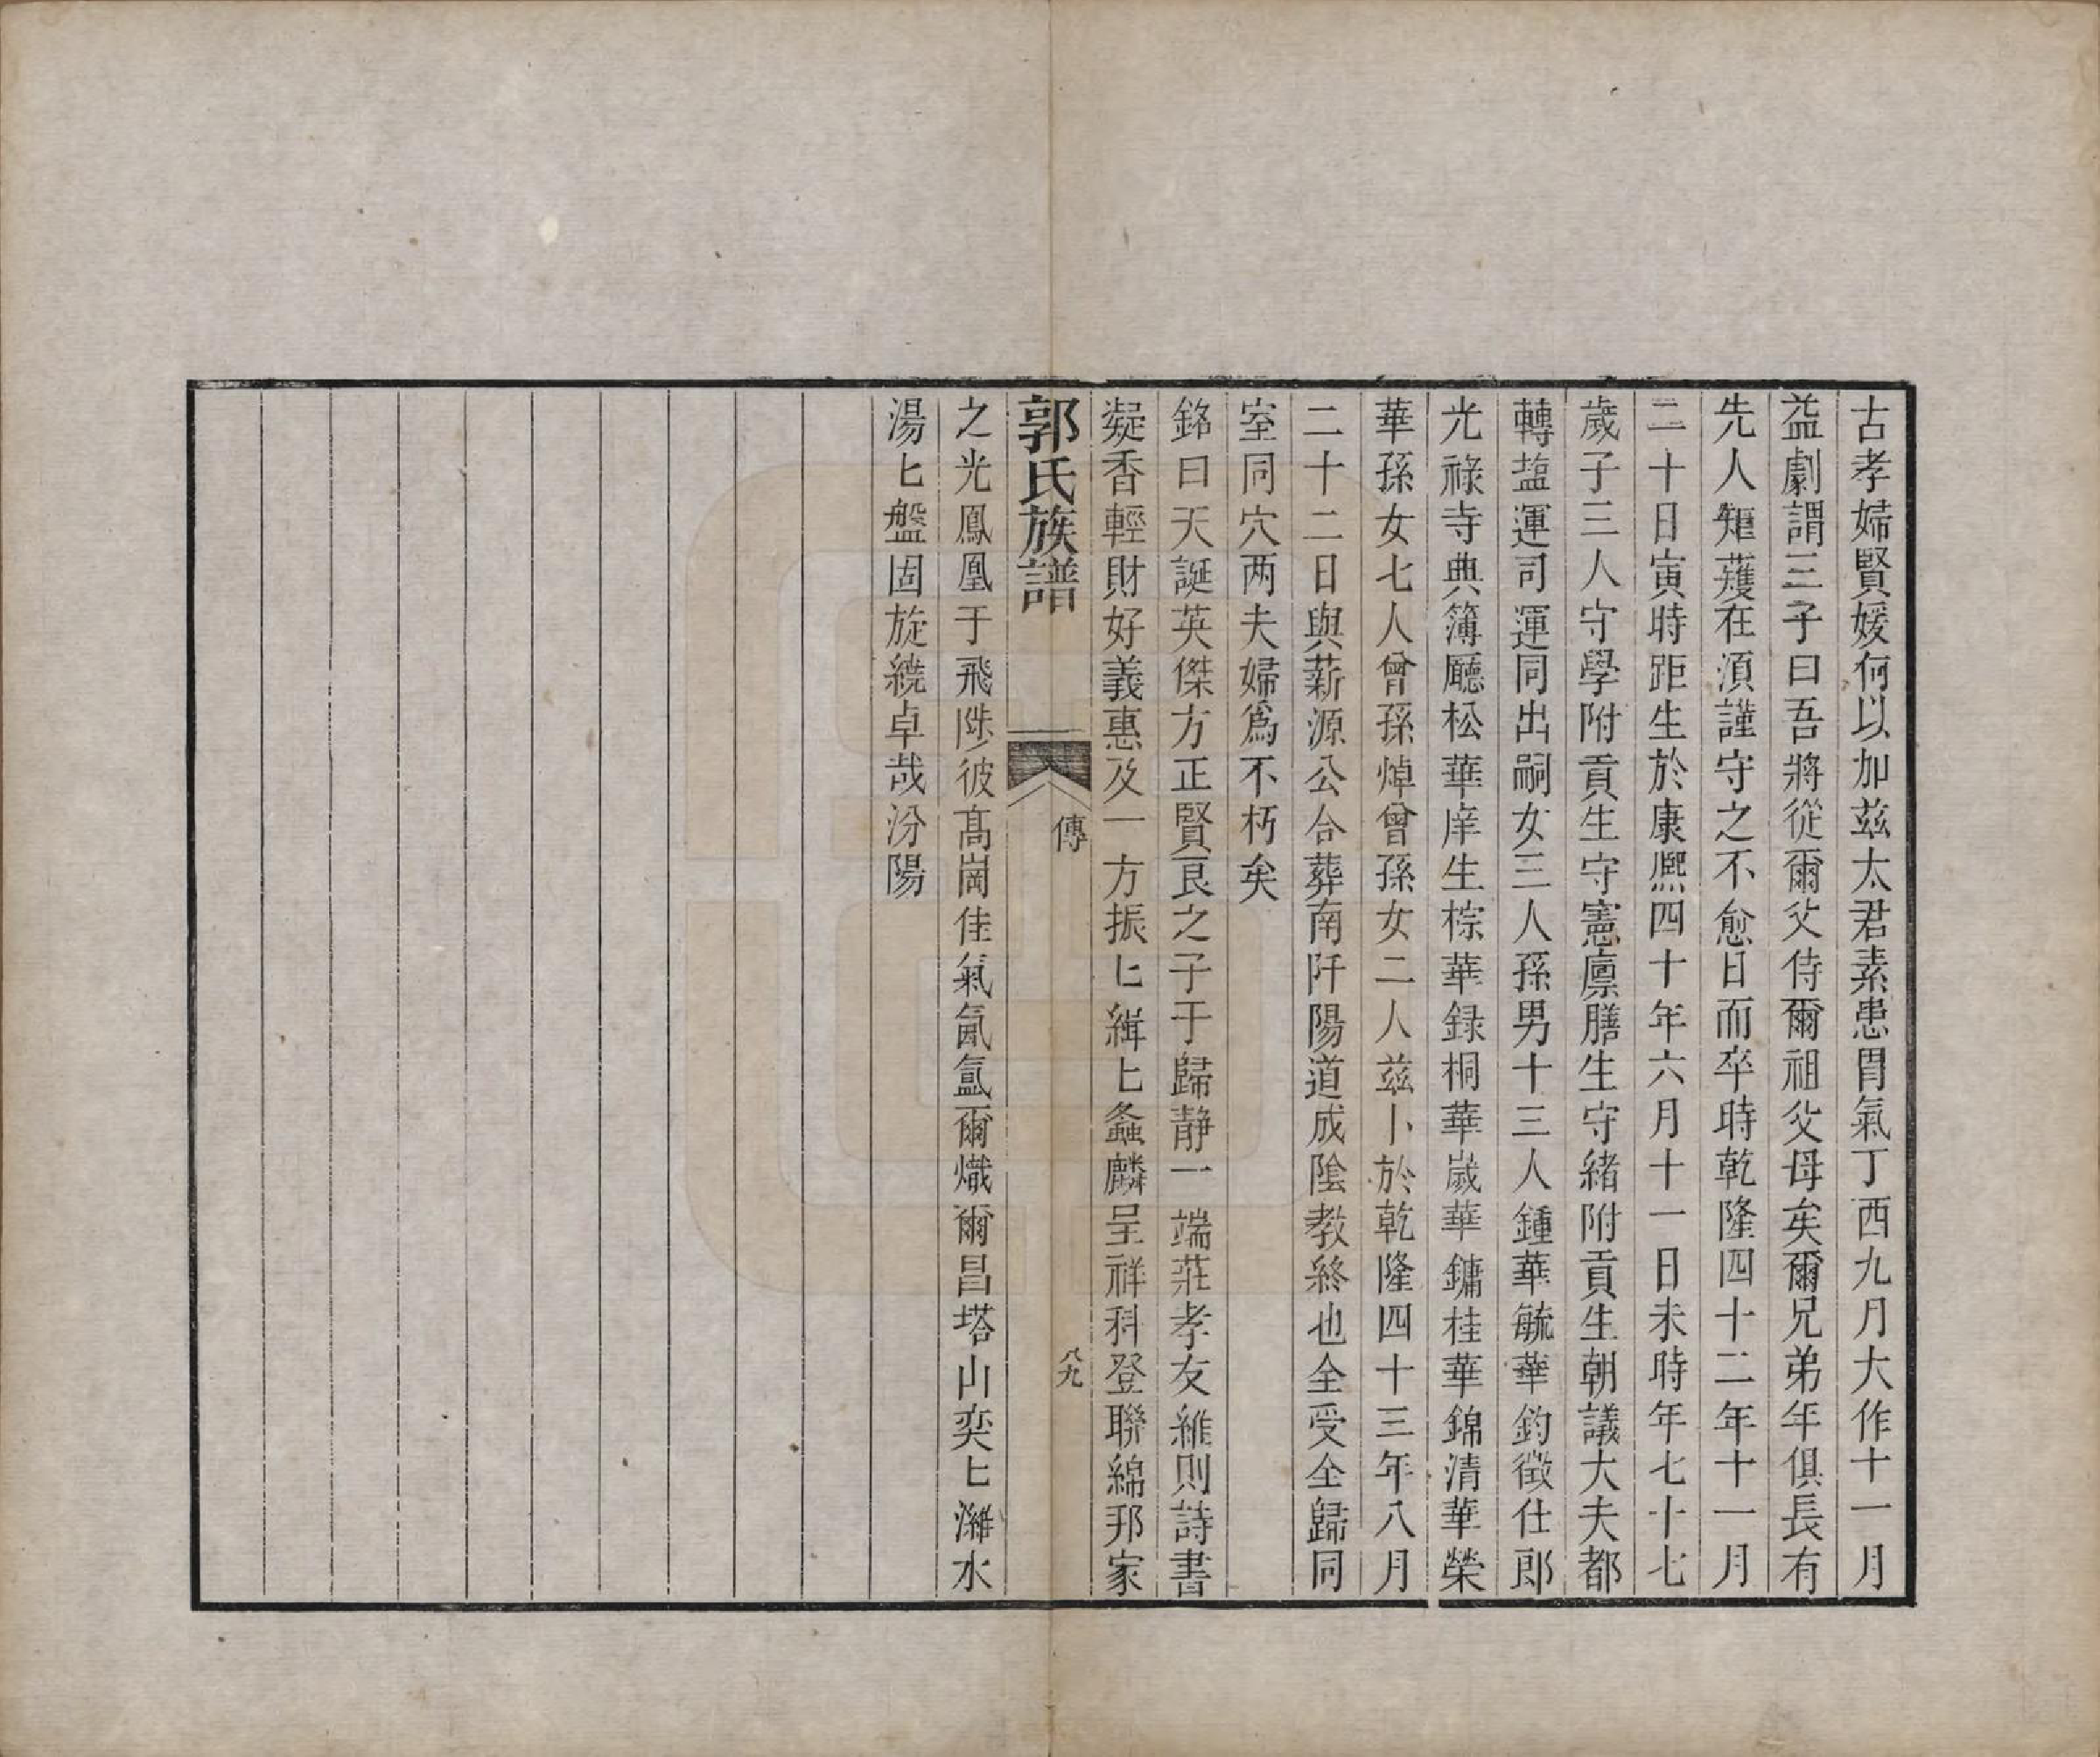 古孝婦賢媛何以加茲太君素患胃氣丁酉九月大作十一月
益劇謂三子曰吾將從爾父侍爾祖父母矣爾兄弟年俱長有
先人矩蒦在湏謹守之不愈日而卒時乾隆四十二年十一月
二十日寅時距生於康熈四十年六月十一日未時年七十七
歲子三人守學附貢生守憲廪膳生守緒附貢生朝議大夫都
轉塩運司運同出嗣女三人孫男十三人鍾華毓華鈞徵仕郎
光祿寺典簿廳松華庠生棕華録桐華嵗華鏞桂華錦清華榮
華孫女七人曾孫焯曾孫女二人兹卜於乾隆四十三年八月
二十二日與薪源公合葬南阡陽道成陰教終也全受全歸同
室同穴两夫婦爲不朽矣
銘曰天誕英傑方正賢良之子于歸静一端莊孝友維則詩書
凝香輕財好義惠及一方振匕緝匕螽麟呈祥科登聯綿邦家
郭氏族譜
傳
八九
之光鳳凰于飛陟彼髙崗佳氣氤氳爾熾爾昌塔山奕匕濰水
湯匕盤固旋繞卓哉汾陽